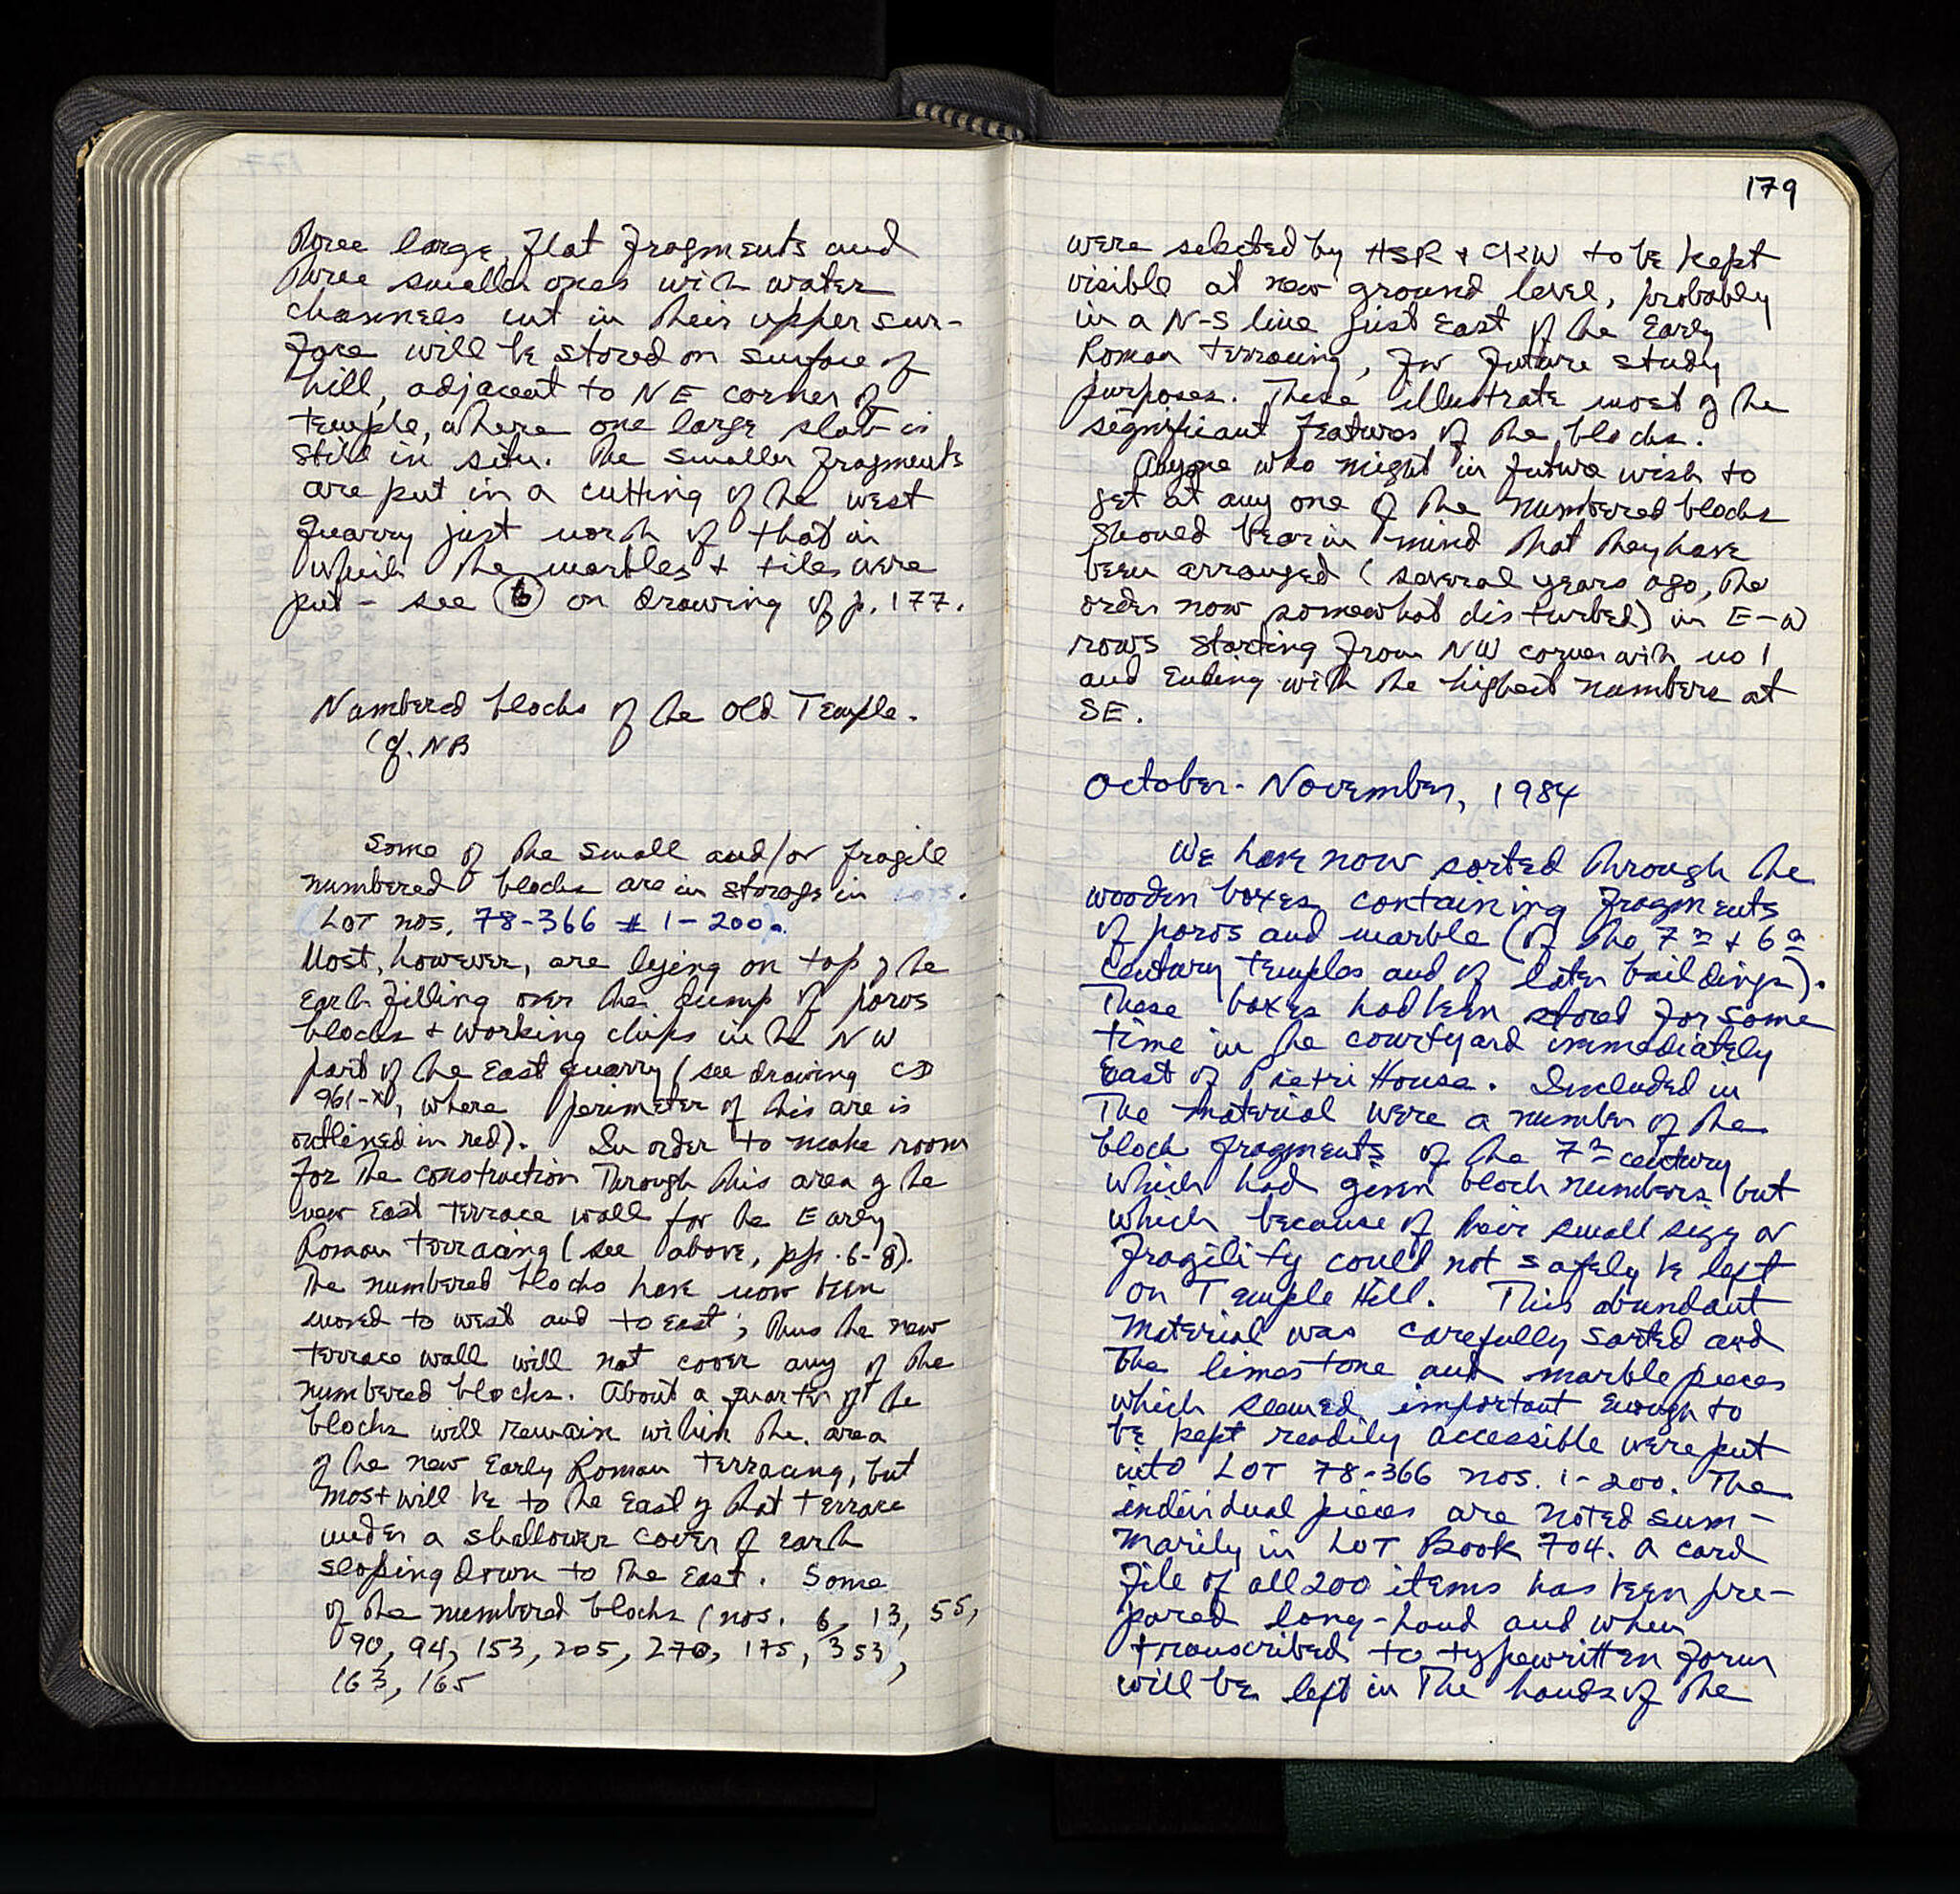 Three large, flat fragments and
three smaller ones with water
channels cut in their upper sur-
face will be stored on surface of
hill, adjacent to NE corner of
temple, where one large slab is
still in situ. The smaller fragments
are put in a cutting of the west
quarry just north of that in
which the marbles + tiles were
put - see (b) on drawing of p. 177.
Numbered blocks of the Old Temple.
(cf. NB
Some of the small and/or fragile
numbered blocks are in storage in
LOT nos. 78-366 # 1-200.
Most, however, are lying on top of the
earth filling over the dump of poros
blocks + working chips in the NW
part of the East quarry (see drawing CD
961-X, where perimeter of this are is
outlined in red). In order to make room
for the construction through this area of the
new East terrace wall for the Early
Roman terracing (see above, pp. 6-8).
The numbered blocks have now been
moved to west and to east; thus the new
terrace wall will not cover any of the
numbered blocks. About a quarter of the
blocks will remain within the area
of the new Early Roman terracing, but
most will be to the East of that terrace
under a shallower cover of earth
sloping down to the East. Some
of the numbered blocks (nos. 6, 13, 55,
90, 94, 153, 205, 270, 175, 353,
163, 165
179
were selected by HSR + CKW to be kept
visible at new ground level, probably
in a N-S line just East of the Early
Roman terracing, for future study
purposes. These illustrate most of the
significant features of the blocks.
Anyone who might in future wish to
get at any one of the numbered blocks
should bear in mind that they have
been arranged (several years ago, the
order now somewhat disturbed) in E-W
rows starting from NW corner with no 1
and ending with the highest numbers at
SE.
October-November, 1984
We have now sorted through the
wooden boxes containing fragments
of poros and marble (of the 7th + 6th
century temples and of later buildings).
These boxes had been stored for some
time in the courtyard immediately
East of Pietri House. Included in
the material were a number of the
block fragments of the 7th century
which had given block numbers but
which because of their small size or
fragility could not safely be left
on Temple Hill. This abundant
material was carefully sorted and
the limestone and marble pieces
which seemed important enough to
be kept readily accessible were put
into LOT 78-366 nos. 1-200. The
individual pieces are noted sum-
marily in LOT Book 704. A card
file of all 200 items has been pre-
pared long-hand and when
transcribed to typewritten form
will be left in the hands of the